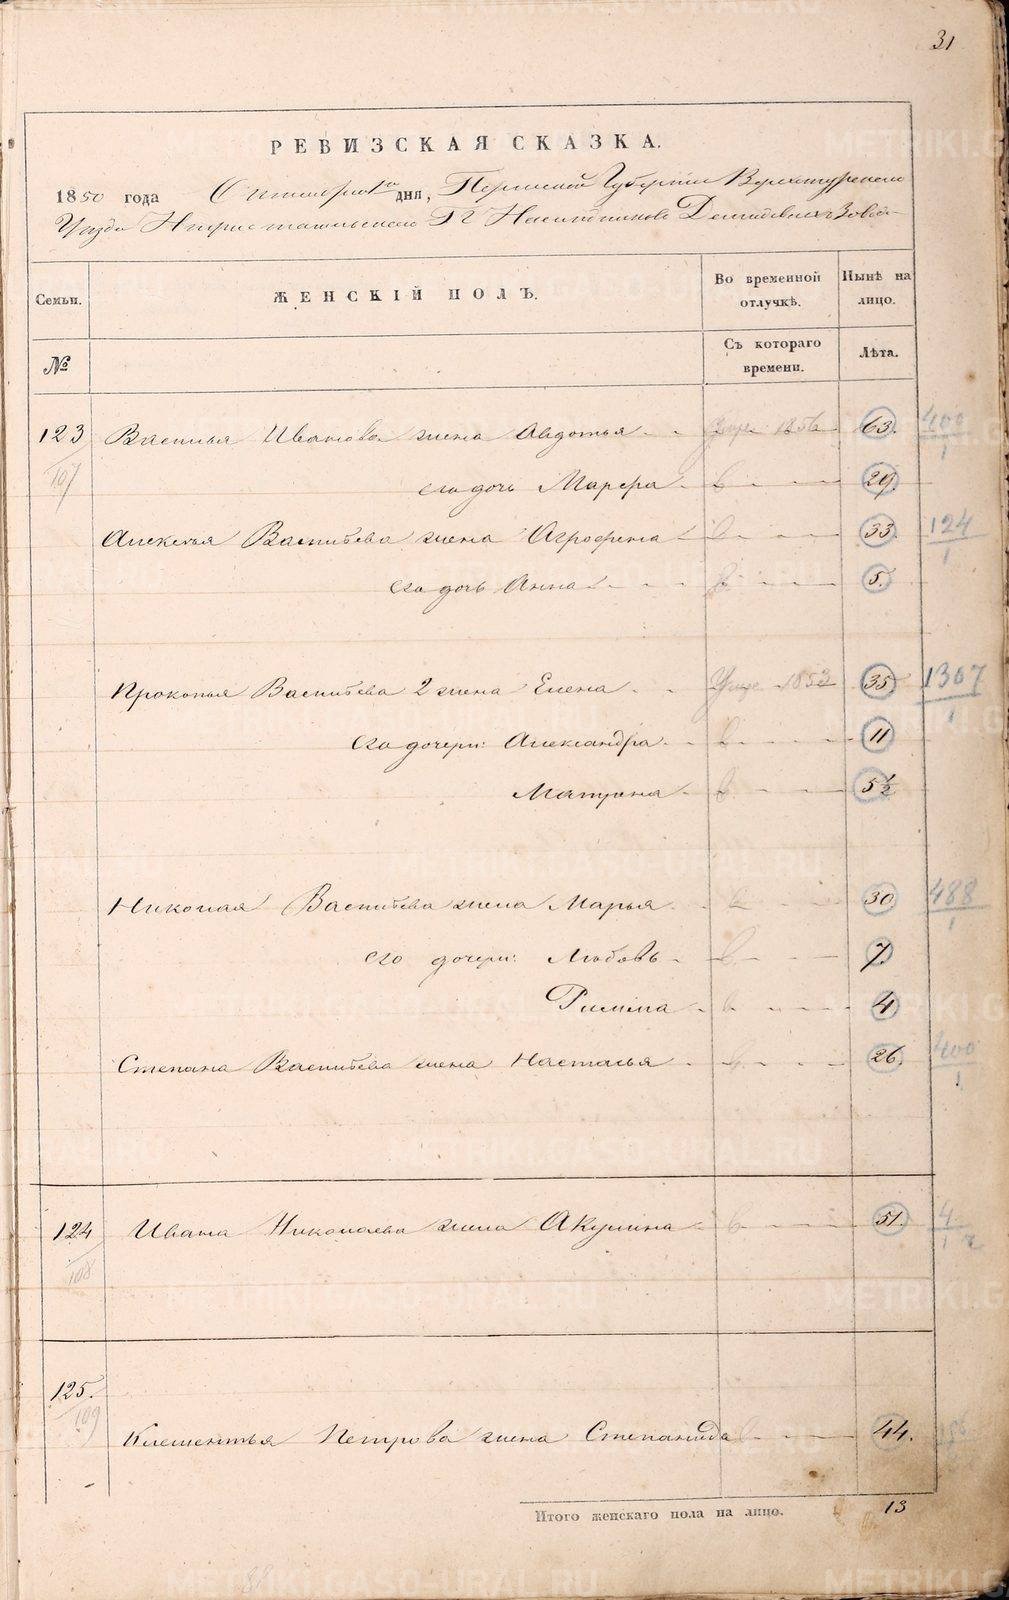 31
РЕВИЗСКАЯ СКАЗКА.
1850 года Сентября 1го дня, Пермской Губернии Верхотурскаго
Уезда Нижнетагильскаго Гг Наследников Демидовых Завода
Семьи.
ЖЕНСКІЙ ПОЛЪ.
Во временной отлучкѣ.
Нынѣ на лицо.
№
Съ котораго времени.
Лѣта.
123 Василья Иванова жена Авдотья 1856 63. 400/1
107 его дочь Марфа 29.
Алексея Васильева жена Агрофена 33. 124/1
его дочь Анна 5.
Прокопья Васильева 2 жена Елена 1853 35 1307/1
его дочери: Александра 11
Матрена 5½
Николая Васильева жена Марья 30 488/1
его дочери: Любовь 7.
4
Степана Васильева жена Настасья 26. 400/1
124 Ивана Николаева жена Акулина 51.
108
125.
109
Клементья Петрова жена Степанида 44.
Итого женскаго пола на лицо. 13
METRIKI.GASO-URAL.RU